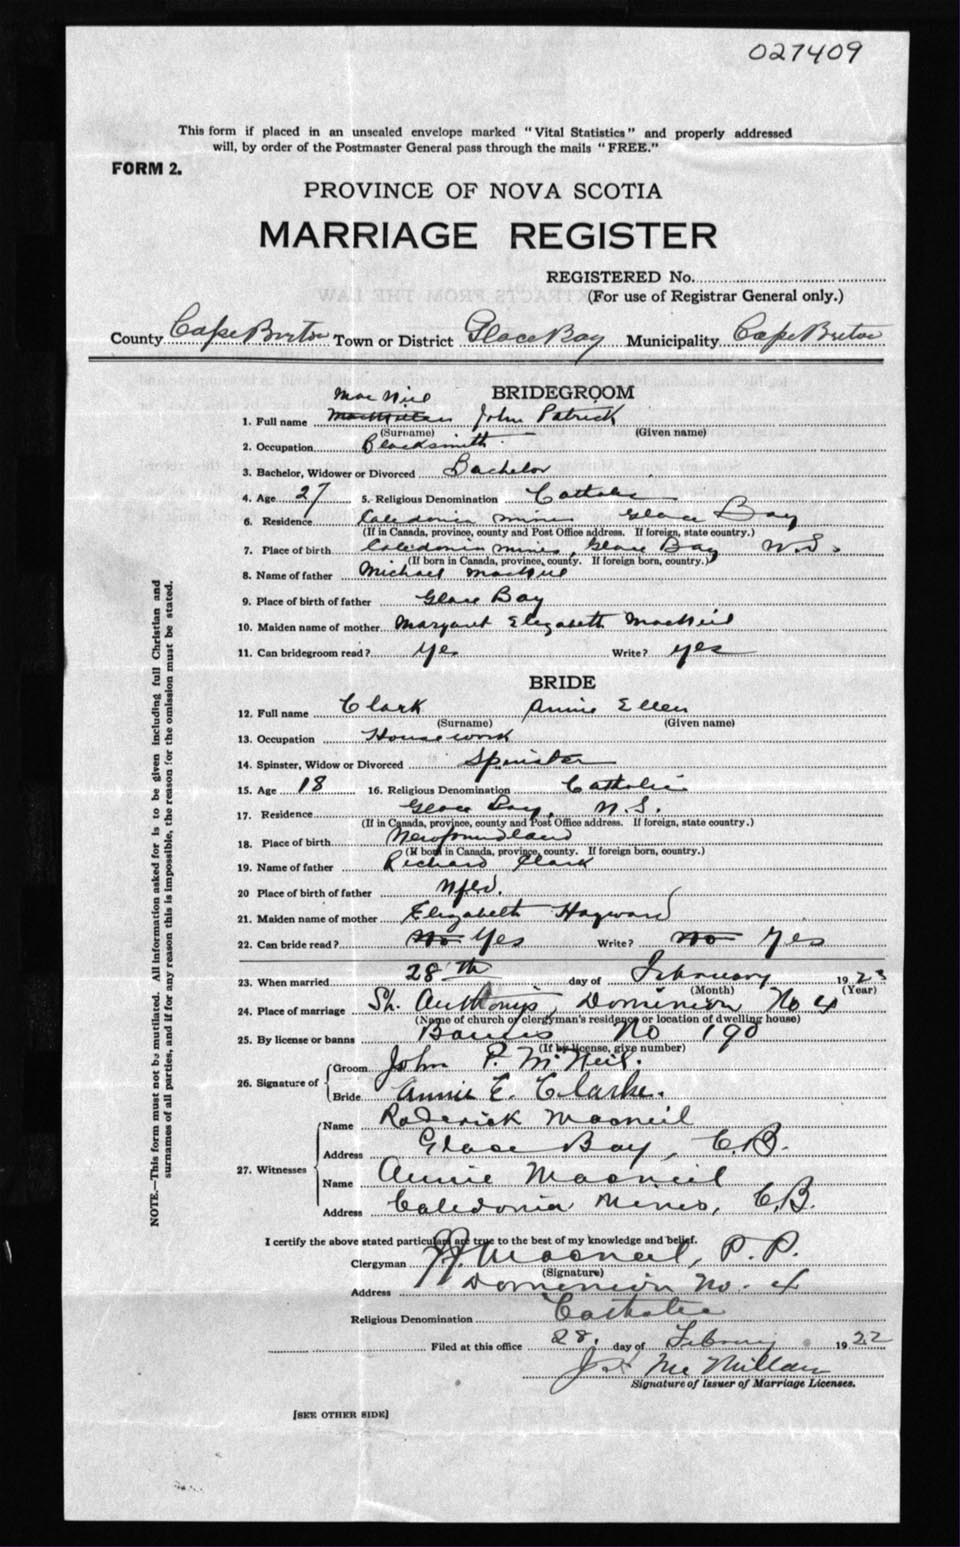 027409
This form if placed in an unsealed envelope marked "Vital Statistics" and properly addressed
will, by order of the Postmaster General pass through the mails "FREE."
FORM 2.
PROVINCE OF NOVA SCOTIA
MARRIAGE REGISTER
REGISTERED No.
(For use of Registrar General only.)
County Cape Breton Town or District Glace Bay Municipality Cape Breton
BRIDEGROOM
MacNeil
1. Full name John Patrick
(Surname) (Given name)
2. Occupation Blacksmith
3. Bachelor, Widower or Divorced Bachelor
4. Age 27 5. Religious Denomination Catholic
6. Residence Caledonia mines Glace Bay
(If in Canada, province, county and Post Office address. If foreign, state country.)
7. Place of birth Caledonia mines, Glace Bay N.S.
(If born in Canada, province, county. If foreign born, country.)
8. Name of father Michael MacNeil
9. Place of birth of father Glace Bay
10. Maiden name of mother Margaret Elizabeth MacNeil
11. Can bridegroom read? Yes Write? yes
BRIDE
12. Full name Clark Annie Ellen
(Surname) (Given name)
13. Occupation Housework
14. Spinster, Widow or Divorced Spinster
15. Age 18 16. Religious Denomination Catholic
17. Residence Glace Bay, N.S.
(If in Canada, province, county and Post Office address. If foreign, state country.)
18. Place of birth Newfoundland
(If born in Canada, province, county. If foreign born, country.)
19. Name of father Richard Clark
20 Place of birth of father Nfld.
21. Maiden name of mother Elizabeth Hayward
22. Can bride read? No Yes Write? No Yes
23. When married 28th day of February 1923
(Month) (Year)
24. Place of marriage St. Anthony's, Dominion No 4
(Name of church or clergyman's residence or location of dwelling house)
25. By license or banns Banns No 190
(If by license, give number)
26. Signature of Groom John P. McNeil.
Bride Annie E. Clarke.
27. Witnesses Name Roderick Macneil
Address Glace Bay, C.B.
Name Annie Macneil
Address Caledonia Mines, C.B.
I certify the above stated particulars are true to the best of my knowledge and belief.
Clergyman Macneil, P.P.
(Signature)
Address Dominion No. 4
Religious Denomination Catholic
Filed at this office 28 day of February 1922
McMillan
Signature of Issuer of Marriage Licenses.
[SEE OTHER SIDE]
NOTE.—This form must not be mutilated. All information asked for is to be given including full Christian and
surnames of all parties, and if for any reason this is impossible, the reason for the omission must be stated.